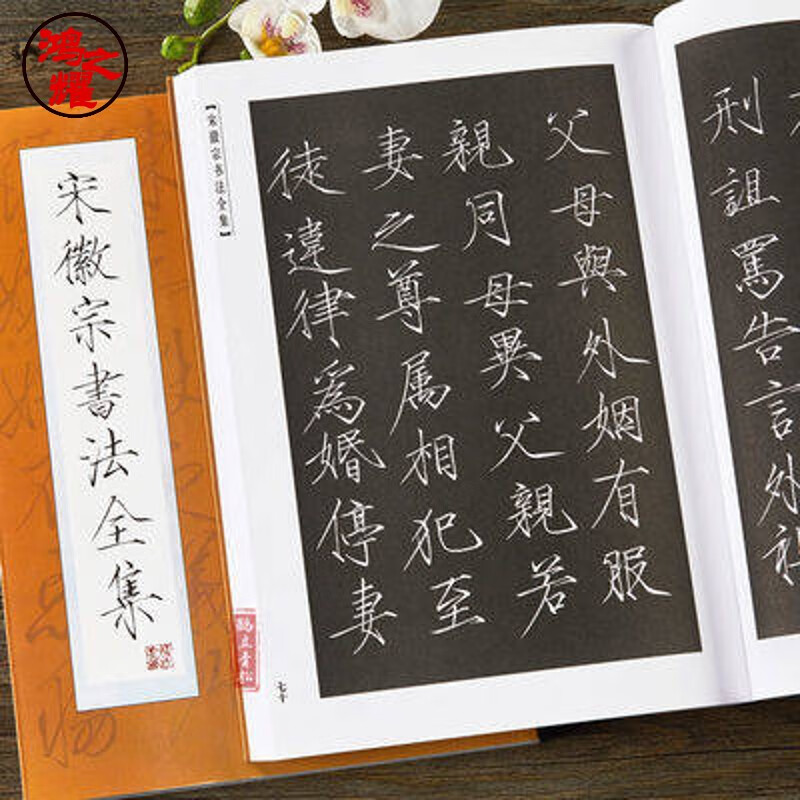 鸿文耀
宋徽宗書法全集
【宋徽宗书法全集】
刑詛罵告言外
父母與外姻有服
親同母異父親若
妻之尊属相犯至
徒違律爲婚停妻
七十